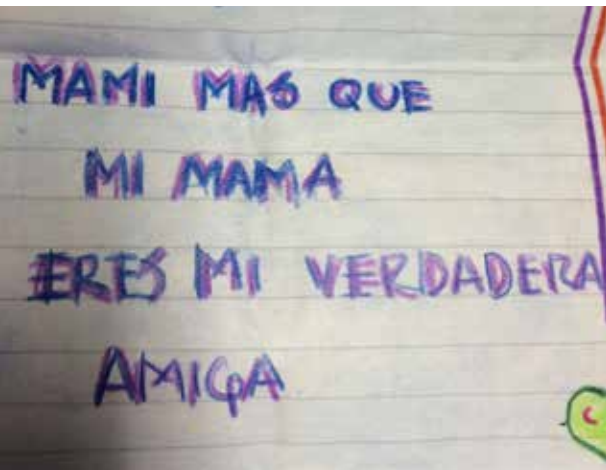 MAMI MAS QUE
MI MAMA
ERES MI VERDADERA
AMIGA